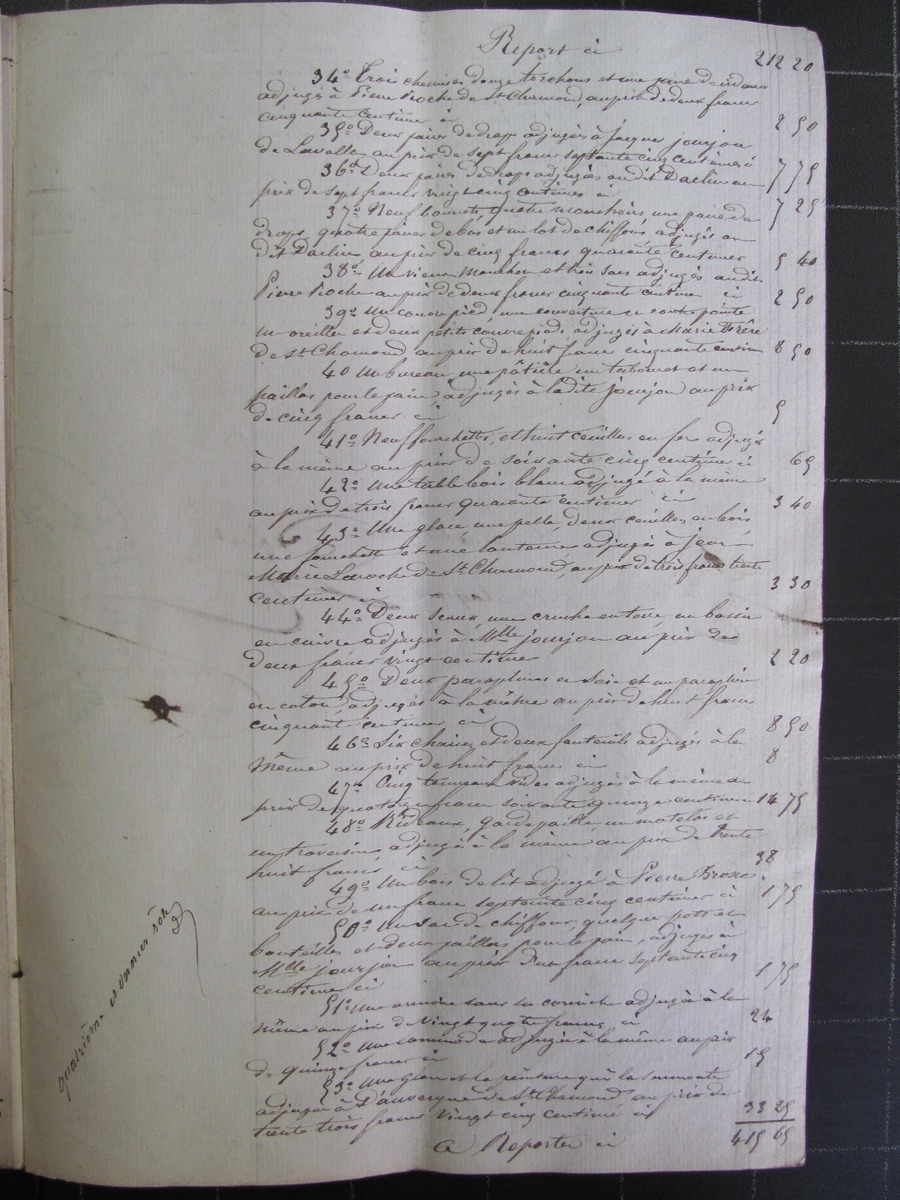 Report ci 212 20
34o Trois chemises douze torchons et une paire de
adjugés à Pierre Proche de St Chamond, au prix de deux francs
cinquante centimes ci 2 50
35o Deux paires de draps adjugés à Jacques Jourjon
de Lavalla au prix de sept francs septante cinq centimes ci 7 75
36o Deux paires de draps adjugés au dit Darlin au
prix de sept francs vingt cinq centimes ci 7 25
37o Neuf bonnets, quatre mouchoirs, une paire de
draps, quatre paires de bas et un lot de chiffons adjugés au
dit Darlin au prix de cinq francs quarante centimes 5 40
38o Un vieux manchon et trois sacs adjugés au dit
Pierre Proche au prix de deux francs cinquante centimes ci 2 50
39o Un couvrepied, une couverture en contrepointe
un oreiller et deux petits couvrepieds adjugés à Marie Frêre
de St Chamond au prix de huit francs cinquante centimes 8 50
40 Un bureau, une pâtière un tabouret et un
paillas pour le pain, adjugés à la dite Jourjon au prix
de cinq francs ci 5
41o Neuf fourchettes, et huit cuillers en fer adjugés
à la même au prix de soixante cinq centimes ci 65
42o Une table bois blanc adjugé à la même
au prix de trois francs quarante centimes ci 3 40
43o Une glace une pelle deux cuillers en bois
une fourchette et une lanterne adjugés à Jean
Marie Laroche de St Chamond, au prix de trois francs trente
centimes ci 3 30
44o Deux seaux, une cruche en terre, un bassin
en cuivre adjugés à Mlle Jourjon au prix de
deux francs vingt centimes 2 20
45o Deux parapluies en soie et un parapluie
en coton, adjugés à la même au prix de huit francs
cinquante centimes ci 8 50
46o Six chaises et deux fauteuils adjugés à la
même au prix de huit francs ci 8
47o Cinq tonneaux vides adjugés à la même au
prix de quatorze francs soixante quinze centimes 14 75
48o Rideaux, garde paille, un matelas et
un traversin, adjugés à la même au prix de trente
huit francs ci 38
49o Un bois de lit adjugé à Pierre
au prix de un franc septante cinq centimes ci 1 75
50o Un sac de chiffons, quelques pots et
bouteilles et deux paillas pour le pain, adjugés à
Mlle Jourjon au prix d'un franc septante cinq
centimes ci 1 75
51o Une armoire sans sa corniche adjugée à la
même au prix de vingt quatre francs ci 24
52o Une commode adjugée à la même au prix
de quinze francs ci 15
53o Une glace et la peinture qui la surmonte
adjugées à D'auvergne de St Chamond au prix de
trente trois francs vingt cinq centimes ci 33 25
A Reporter ci 415 65
quatrième et dernier rôle